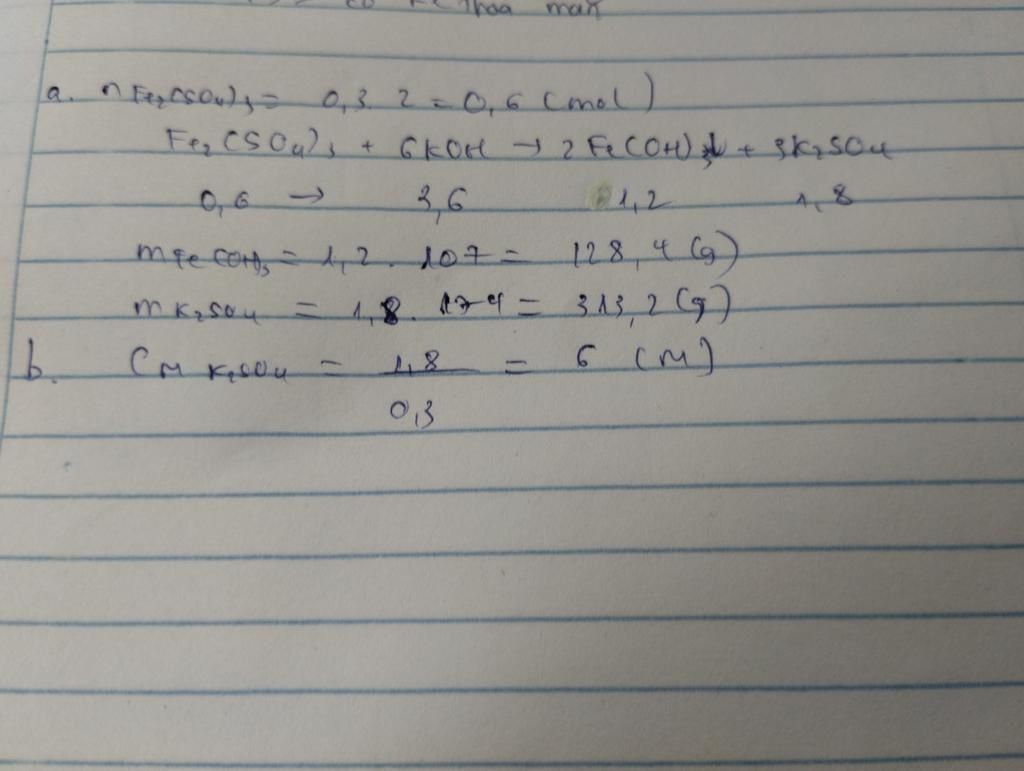 có thoả mãn
a. nFe₂(SO₄)₃ = 0,3. 2 = 0,6 (mol)
Fe₂(SO₄)₃ + 6KOH → 2Fe(OH)₃↓ + 3K₂SO₄
0,6 → 3,6 1,2 1,8
mFe(OH)₃ = 1,2. 107 = 128,4 (g)
mK₂SO₄ = 1,8. 174 = 313,2 (g)
b. CM K₂SO₄ = 1,8 = 6 (M)
0,3